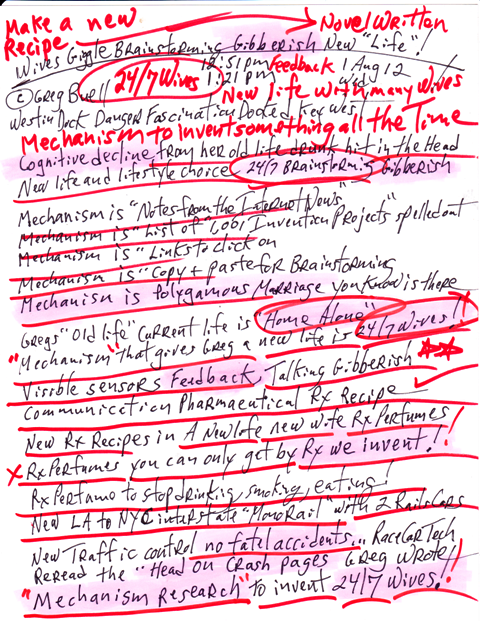 Make a new → Novel Written
Recipe
Wives Giggle Brainstorming Gibberish New "Life"!
12:51 pm Feedback 1 Aug 12
© Greg Buell 24/7 Wives 1:21 pm Wed
New life with many wives
Westin Dock Danger Fascination Docked Key West
Mechanism to Invent something all the Time
Cognitive decline from her old life drunk hit in the Head
New life and lifestyle choice 24/7 Brainstormig Gibberish
Mechanism is "Notes from the Internet News"
Mechanism is "List of" 1,001 Invention Projects" spelled out
Mechanism is "Links to click on
Mechanism is "Copy + paste for Brainstorming
Mechanism is polygamous Marriage you know is there
Gregs "Old life" current life is "Home Alone"
"Mechanism" that gives Greg a new life is 24/7 Wives!!
Visible sensors Feedback, Talking Gibberish
Communiccation Pharmaeutical Rx Recipe
New Rx Recipes in A New life new wife Rx Perfumes
x Rx Perfumes you can only get by Rx we invent!!
Rx Perfume to stop drinking, smoking, eating!
New LA to NYC interstate "MonoRail" with 2 Rails Cars
New Traffic control no fatel accidents... RaceCar Tech
Reread the "Head On Crash pages Greg wrote!!
"Mechanism Research" to invent 24/7 Wives!!